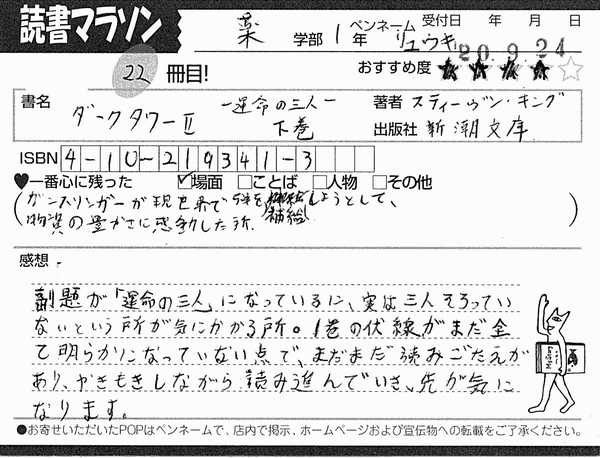 読書マラソン
薬 学部 1年 ペンネーム リュウキ 受付日 年 月 日
20.9.24
22 冊目!
おすすめ度 ★★★★☆
書名 ダークタワーⅡ ー運命の三人ー 下巻
著者 スティーヴン・キング
出版社 新潮文庫
ISBN 4-10-219341-3
♥一番心に残った ☑場面 □ことば □人物 □その他
(ガンスリンガーが現世界で弾を補給しようとして、
物資の豊かさに感動した所。)
感想
副題が「運命の三人」になっているに、実は三人そろってい
ないという所が気にかかる所。1巻の伏線がまだ全
て明らかになっていない点で、まだまだ読みごたえが
あり、やきもきしながら読み進んでいき、先が気に
なります。
●お寄せいただいたPOPはペンネームで、店内で掲示、ホームページおよび宣伝物への転載をご了承ください。